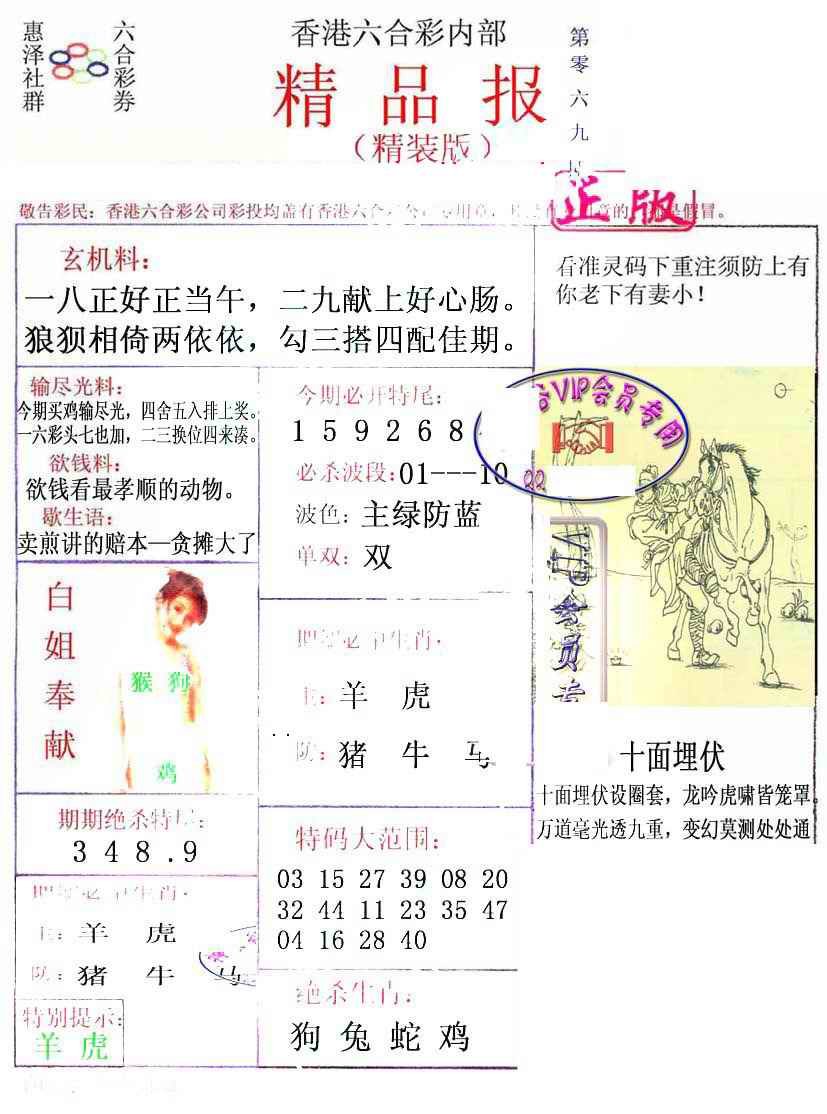 惠泽社群
六合彩券
香港六合彩内部
精品报
（精装版）
第零六九
正版
敬告彩民：香港六合彩公司彩投均盖有香港六合
玄机料：
一八正好正当午，二九献上好心肠。
狼狈相倚两依依，勾三搭四配佳期。
看准灵码下重注须防上有
你老下有妻小！
输尽光料：
今期买鸡输尽光，四舍五入排上奖。
一六彩头七也加，二三换位四来凑。
欲钱料：
欲钱看最孝顺的动物。
歇生语：
卖煎讲的赔本—贪摊大了
今期必开特尾：
1 5 9 2 6 8
必杀波段：01---10
波色：主绿防蓝
单双：双
VIP会员专用
QQ
VIP会员专
白姐奉献
猴 狗
鸡
主：羊 虎
防：猪 牛 马
十面埋伏
十面埋伏设圈套，龙吟虎啸皆笼罩。
万道毫光透九重，变幻莫测处处通
期期绝杀特尾：
3 4 8 . 9
主：羊 虎
防：猪 牛 马
特别提示：
羊 虎
特码大范围：
03 15 27 39 08 20
32 44 11 23 35 47
04 16 28 40
绝杀生肖：
狗 兔 蛇 鸡